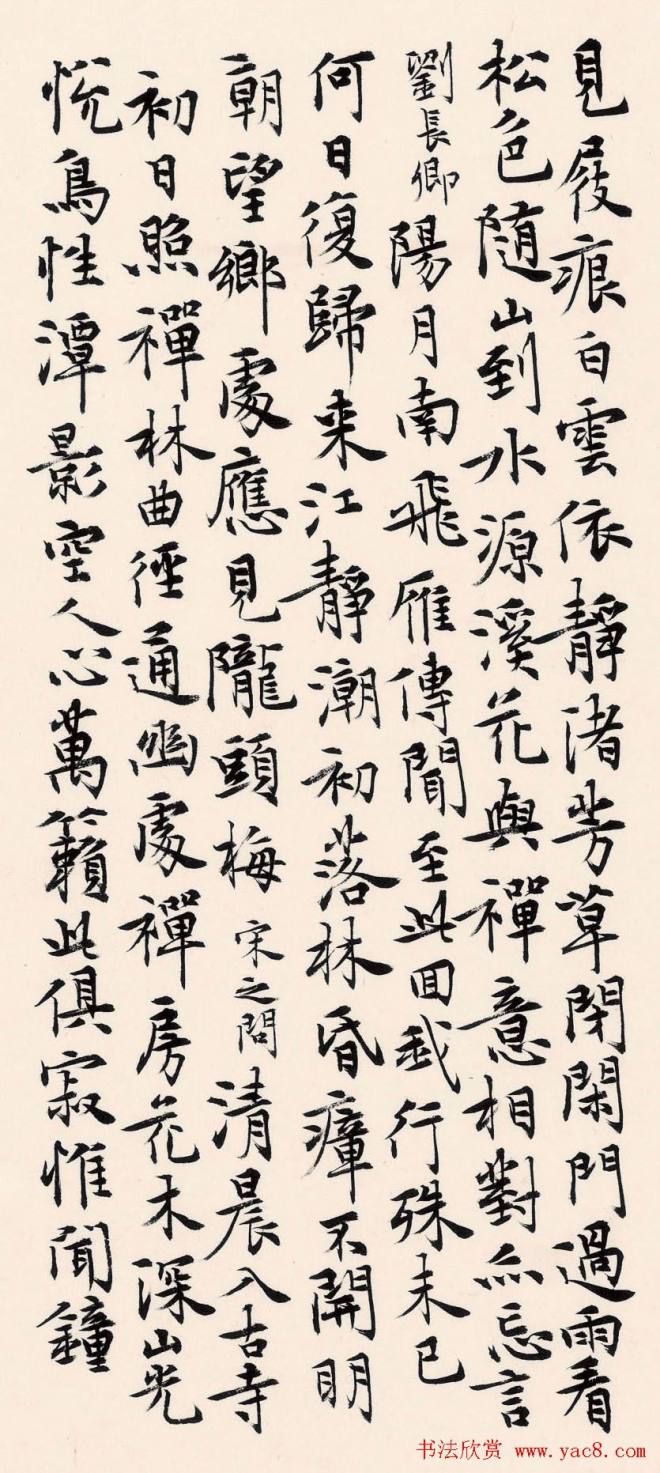 見屐痕白雲依靜渚芳草閉閑門過雨看
松色隨山到水源溪花與禪意相對亦忘言
劉長卿 陽月南飛雁傳聞至此回我行殊未已
何日復歸来江靜潮初落林昏瘴不開明
朝望鄉處應見隴頭梅 宋之問 清晨入古寺
初日照禪林曲徑通幽處禪房花木深山光
悅鳥性潭影空人心萬籟此俱寂惟聞鐘
书法欣赏 www.yac8.com